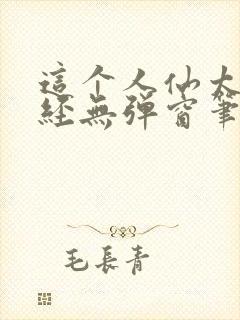 這个人仙太
經無彈窗筆
毛長青